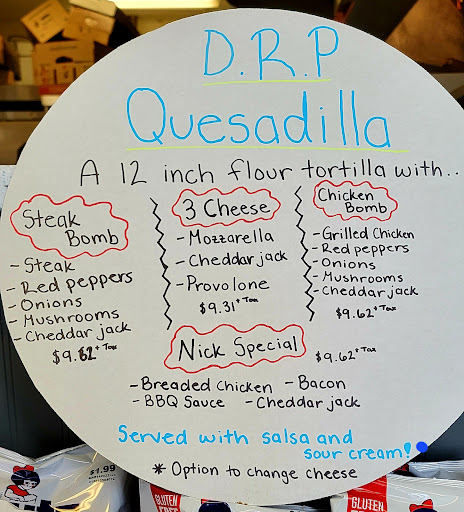 D.R.P
Quesadilla
A 12 inch flour tortilla with..
Steak
Bomb
- Steak
- Red peppers
- Onions
- Mushrooms
- Cheddar jack
$9.62 + Tax
3 Cheese
- Mozzarella
- Cheddar jack
- Provolone
$9.31 + Tax
Chicken
Bomb
- Grilled Chicken
- Red peppers
- Onions
- Mushrooms
- Cheddar jack
$9.62 + Tax
Nick Special
$9.62 + Tax
- Breaded Chicken - Bacon
- BBQ Sauce - Cheddar jack
Served with salsa and
sour cream!
* Option to change cheese
$1.99
GLUTEN
GLUTEN